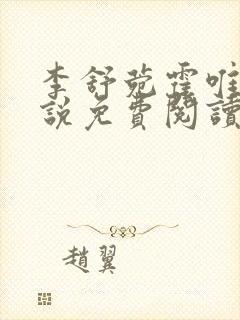 李舒菀霍唯
說免費閱讀
趙翼